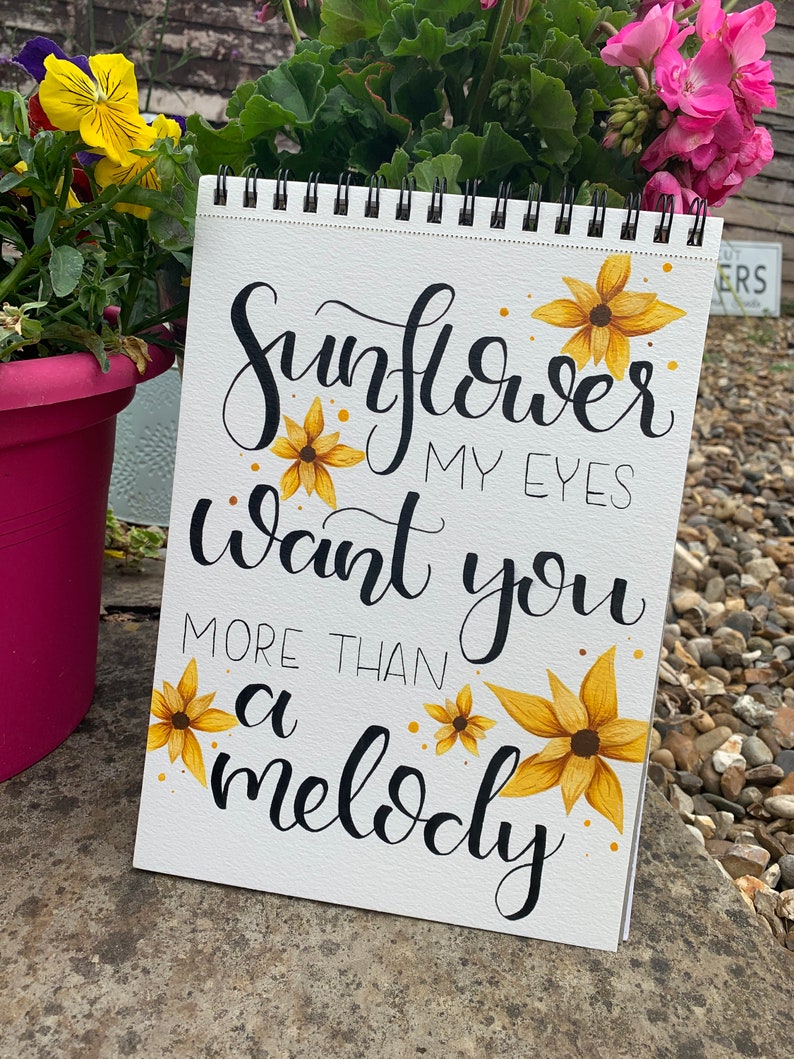 Sunflower
MY EYES
want you
MORE THAN
a
melody
ERS